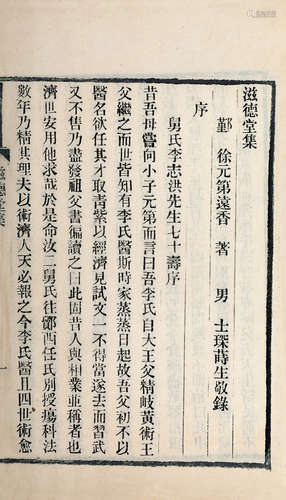 滋德堂集
鄞 徐元第遠香 著 男 士琛蒔生敬錄
序
舅氏李志洪先生七十壽序
昔吾母嘗向小子元第而言曰吾李氏自大王父精岐黃術王
父繼之而世皆知有李氏醫斯時家蒸蒸日起故吾父初不以
醫名欲任其才取青紫以經濟見試文一不得當遂去而習武
又不售乃盡發祖父書徧讀之曰此固昔人與相業並稱者也
濟世安用他求哉於是命汝二舅氏往鄮西任氏別授瘍科法
數年乃精其理夫以術濟人天必報之今李氏醫且四世術愈
滋德堂集